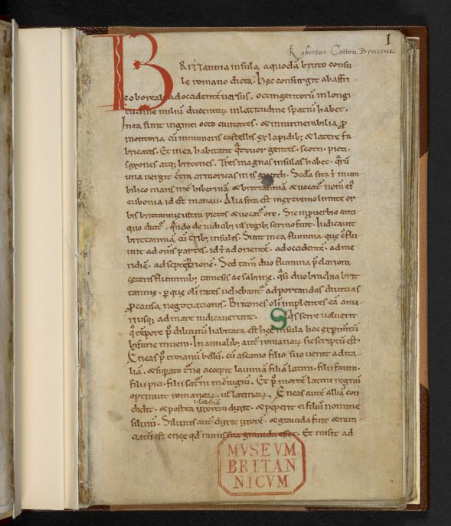 1
Robertus Cotton Bruceus
Brittannia insula, a quoda bruto consu
le romano dicta. hec consurgit ab affri
co boreali ad occidente versus, octingentoru in longi
tudine miliu, ducentoru in latitudine spatiu habet.
In ea sunt viginti octo civitates, & innumerabilia p
montoria, cu innumeris castellis, ex lapidib; & latere fa
bricatis. Et in ea habitant quattuor gentes, scotti, picti,
saxones atq; brittones. Tres magnas insulas habet, quaru
una vergit contra armoricas
bilico maris int hiberniam & brittanniam, & vocat nom ei
eubonia id est manau. Alia sita est in extremo limite or
bis brittannie ultra pictos & vocat orc.
quo dicit, quando de iudicib; vl regib; sermo fuit. Iudicavit
brittanniam cu trib; insulis. Sunt in ea flumina, que flu
unt ad oms partes, id est ad oriente, ad occidente, ad me
ridie, ad septentrione. Sed tam duo flumina pclariora
ceteris fluminib; tamesis ac sabrine, quasi duo brachia brit
tannie, p que oli rates vehebant ad portandas divitias
p causa negociationis. Britones oli implentes ea a mari
usq; ad mare iudicaverunt. Si quis scire voluerit
quo tempore p diluviu habitata est hec insula hoc experimtu
bifarie inveni. In annalib; aut romanoru sic scriptu est.
Eneas p troianu bellu, cu ascanio filio suo venit ad ita
lia, & supato turno accepit lavinia filia latini, filii fauni,
filii pici, filii saturni in coniugiu. Et p morte latini regnu
optinuit romanoru, vl latinoru. Eneas aut alba con
didit, & postea uxore duxit, & peperit ei filiu nomine
silviu. Silvius aut duxit uxore, & gravida fuit & nun
ciatu est enee qd nurus sua gravida esset. Et misit ad
MVSEVM
BRITAN
NICVM